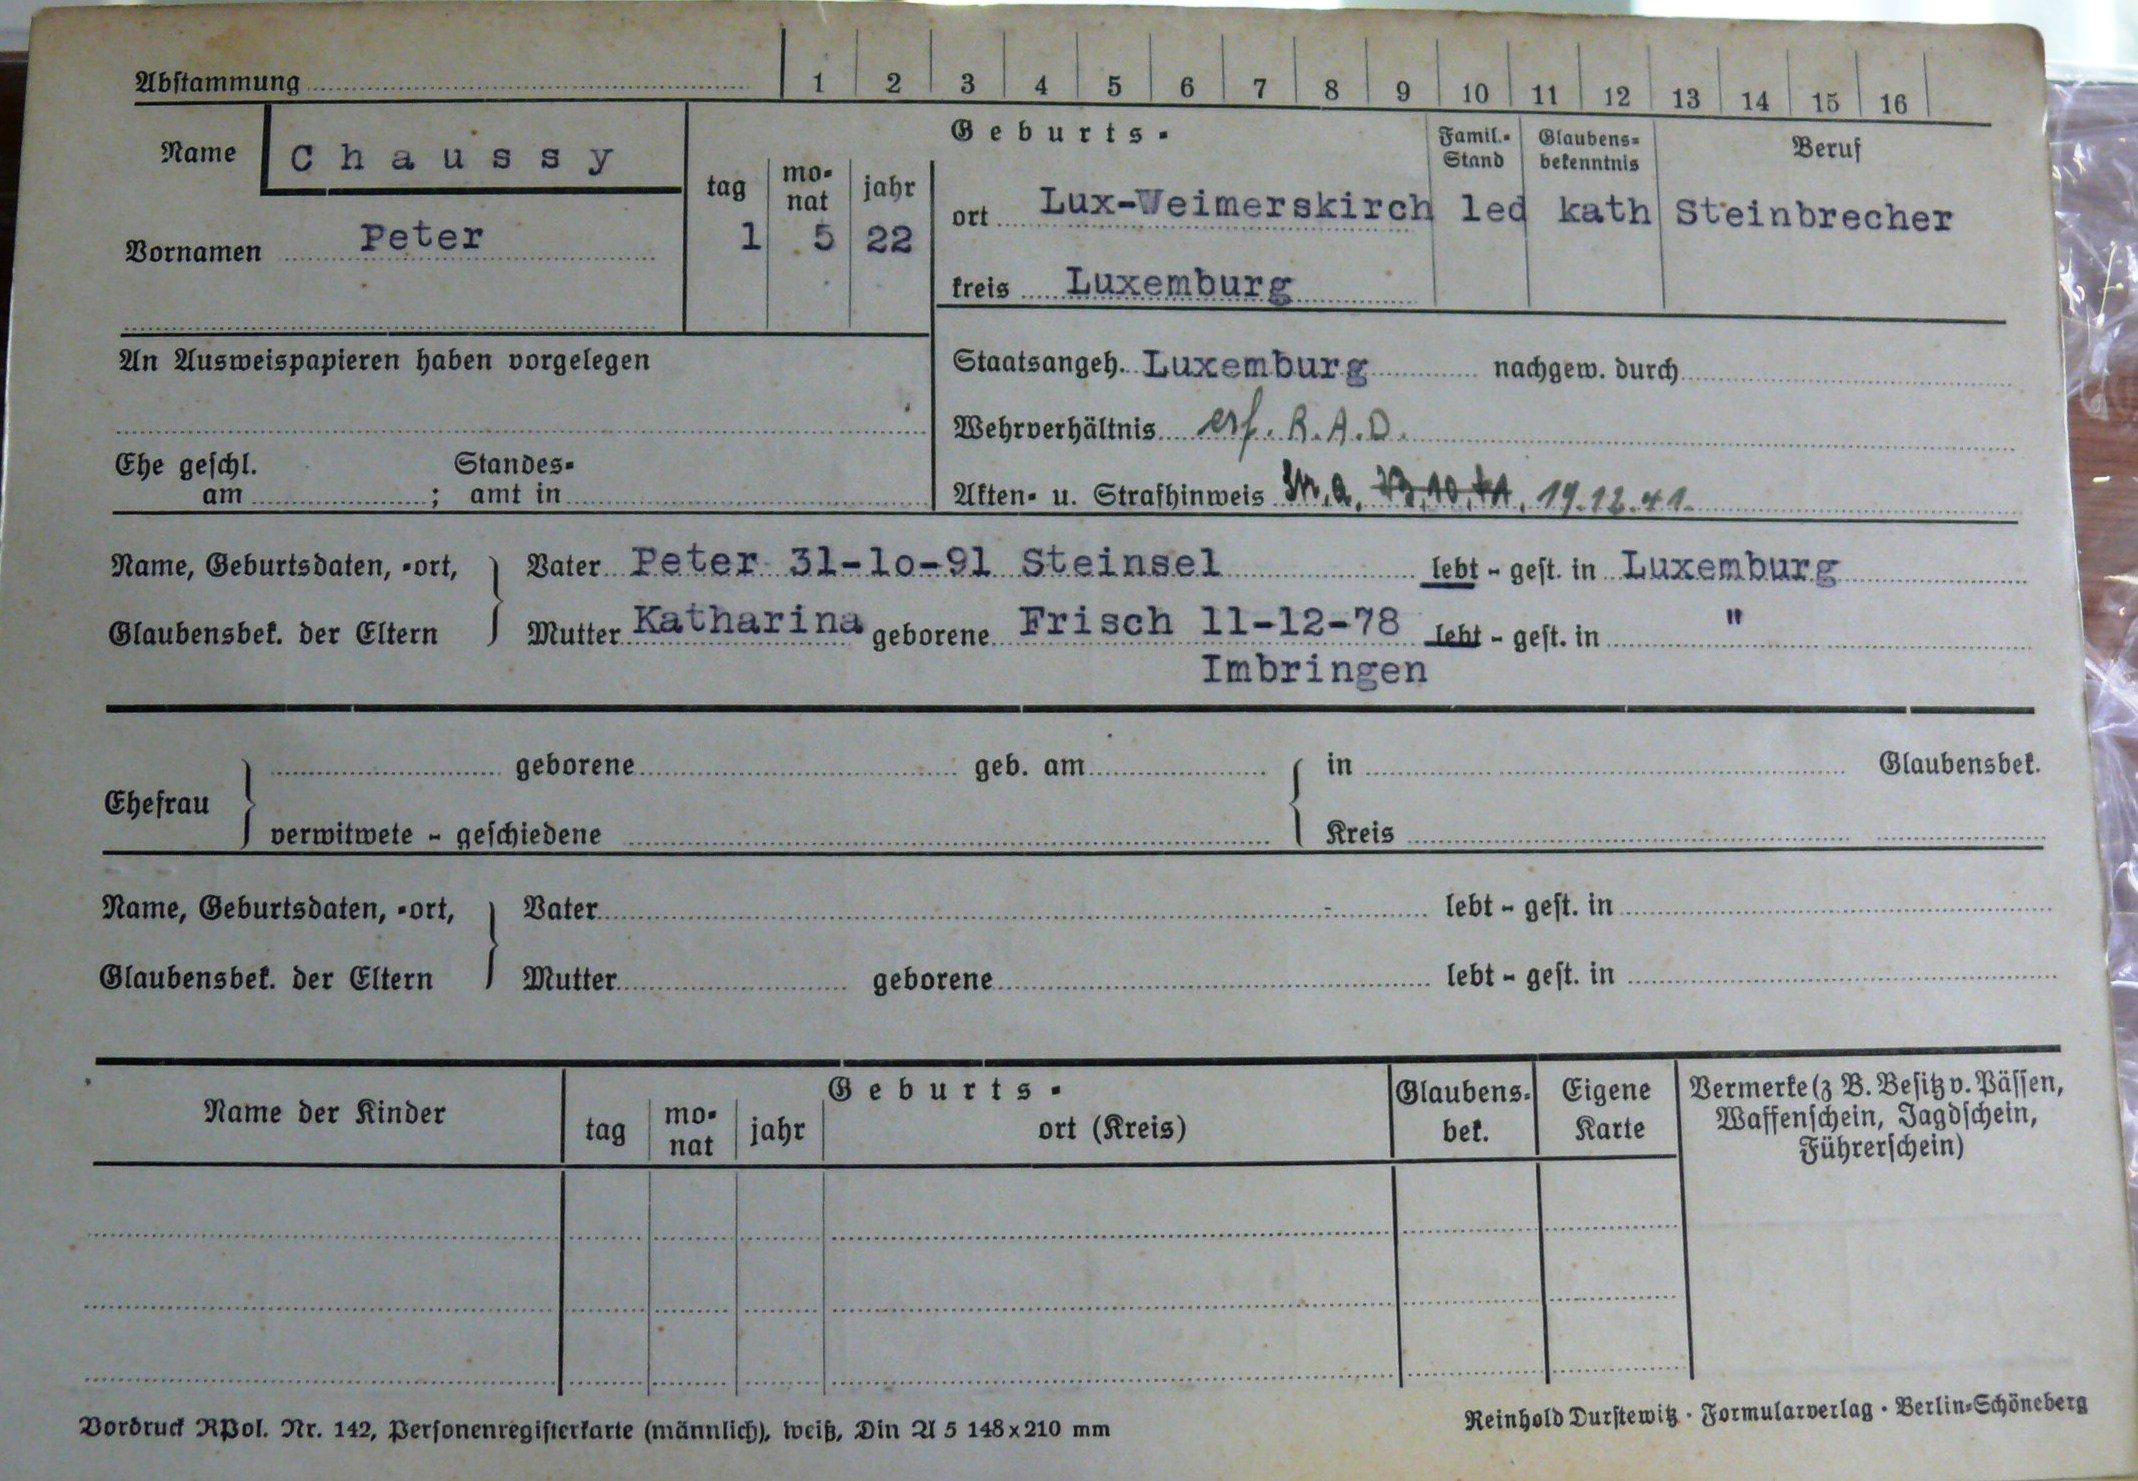 Abstammung 1 2 3 4 5 6 7 8 9 10 11 12 13 14 15 16
Name Chaussy
Vornamen Peter
Geburts-
tag monat jahr
1 5 22
ort Lux-Weimerskirch
kreis Luxemburg
Famil.-Stand
led
Glaubens-bekenntnis
kath
Beruf
Steinbrecher
An Ausweispapieren haben vorgelegen
Staatsangeh. Luxemburg nachgew. durch
Wehrverhältnis erf. R.A.D.
Ehe geschl. am ; Standes-amt in
Akten- u. Strafhinweis 19.12.41.
Name, Geburtsdaten, -ort, Vater Peter 31-lo-91 Steinsel lebt - gest. in Luxemburg
Glaubensbek. der Eltern Mutter Katharina geborene Frisch 11-12-78 lebt - gest. in "
Imbringen
Ehefrau geborene geb. am in Glaubensbek.
verwitwete - geschiedene Kreis
Name, Geburtsdaten, -ort, Vater lebt - gest. in
Glaubensbek. der Eltern Mutter geborene lebt - gest. in
Name der Kinder
Geburts-
tag monat jahr ort (Kreis)
Glaubens-bek.
Eigene Karte
Vermerke (z B. Besitz v. Pässen,
Waffenschein, Jagdschein,
Führerschein)
Vordruck RPol. Nr. 142, Personenregisterkarte (männlich), weiß, Din A 5 148x210 mm
Reinhold Durstewitz · Formularverlag · Berlin-Schöneberg